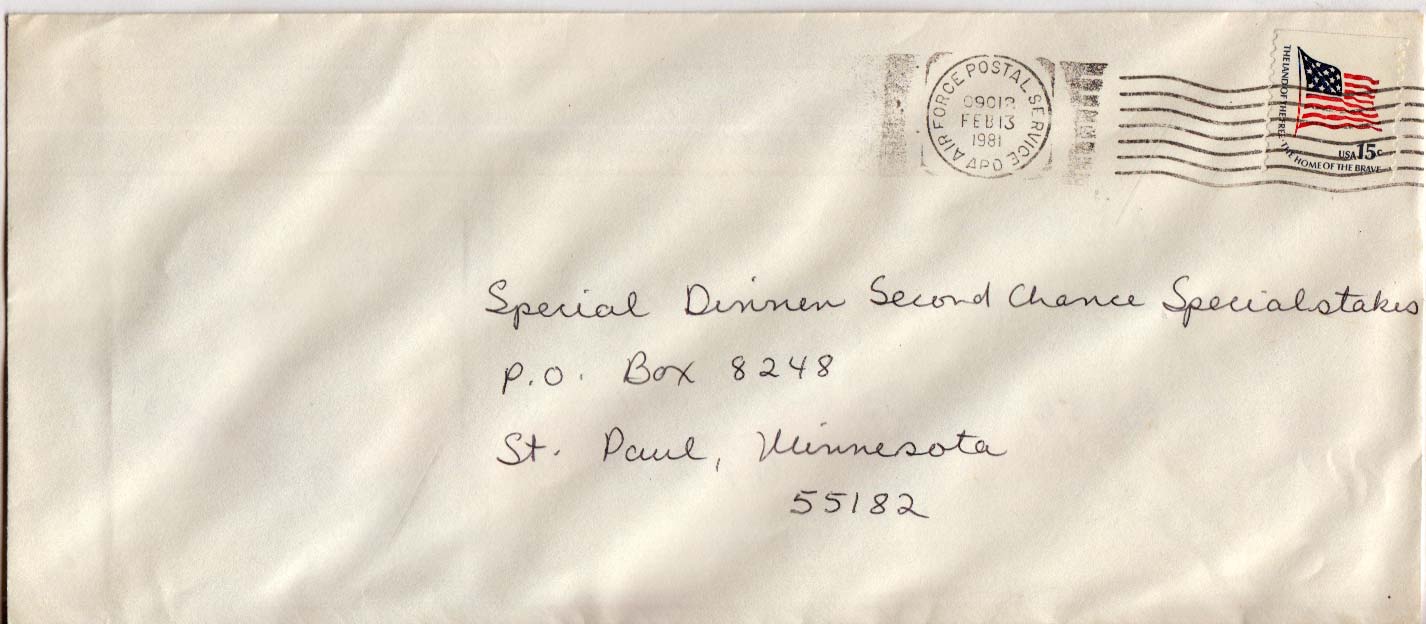 AIR FORCE POSTAL SERVICE
09012
FEB 13
1981
APO
THE LAND OF THE FREE THE HOME OF THE BRAVE
USA 15c
Special Dinner Second Chance Specialstakes
P.O. Box 8248
St. Paul, Minnesota
55182